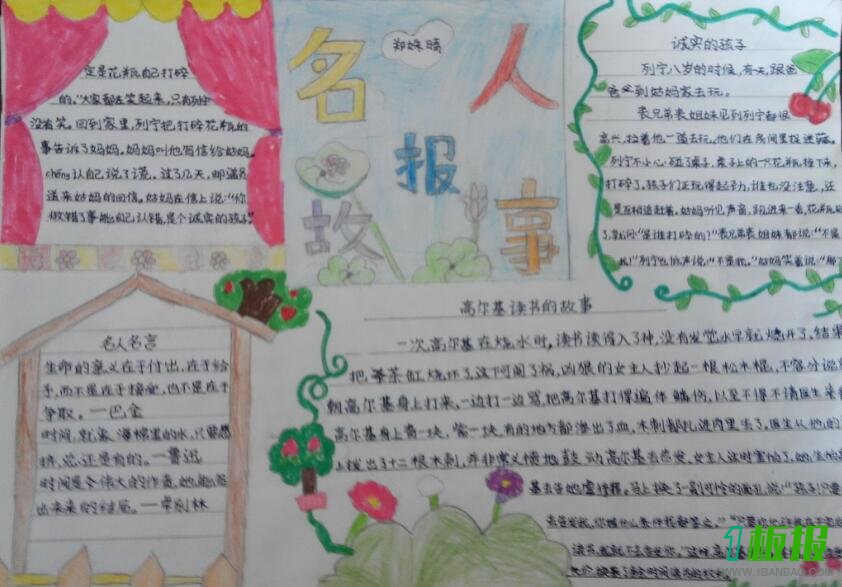 名人
报
故事
郑姝晴
诚实的孩子
列宁八岁的时候,有天,跟爸
爸到姑妈家去玩。
表兄弟表姐妹见到列宁都很
高兴,拉着他一道去玩。他们在房间里捉迷藏。
列宁不小心碰了桌子,桌子上的一只花瓶掉下来,
打碎了。孩子们正玩得起劲,谁也没注意,还
是互相追赶着。姑妈听见声音,跑进来一看,花瓶
了,就问:“是谁打碎的?”表兄弟表姐妹都说:“不是
我!”列宁也低声说:“不是我。”姑妈笑着说:“那
定是花瓶自己打碎
的。”大家都在笑起来,只有列宁
没有笑。回到家里,列宁把打碎花瓶的
事告诉了妈妈。妈妈叫他写信给姑妈。
chéng认自己说了谎。过了几天,邮递员
送来姑妈的回信。姑妈在信上说:“你
做错了事能自己认错,是个诚实的孩子。”
名人名言
生命的意义在于付出,在于给
予,而不是在于接受,也不是在于
争取。—巴金
时间,就象海棉里的水,只要愿
挤,总还是有的。—鲁迅
时间是个伟大的作者,她能写
出未来的结局。—卓别林
高尔基读书的故事
一次,高尔基在烧水时,读书读得入了神,没有发觉水早就烧开了,结果
把茶缸烧坏了。这下可闯了祸,凶狠的女主人抄起一根松木棍,不容分说
朝高尔基身上打来,一边打一边骂,把高尔基打得遍体鳞伤,以至不得不请医生来
高尔基身上青一块,紫一块,有的地方都渗出了血,木刺都扎进肉里去了。医生从他的
上拔出了十二根木刺,并非常义愤地鼓动高尔基去告发,女主人这时害怕了,她生怕高
基去告她虐待罪。马上换了一副可怜的面孔,说:“孩子,只要
去告发我,你提什么条件我都答应。”“只要你允许我在干完
读书,我就不去告你。”
1板报
WWW.1BANBAO.COM